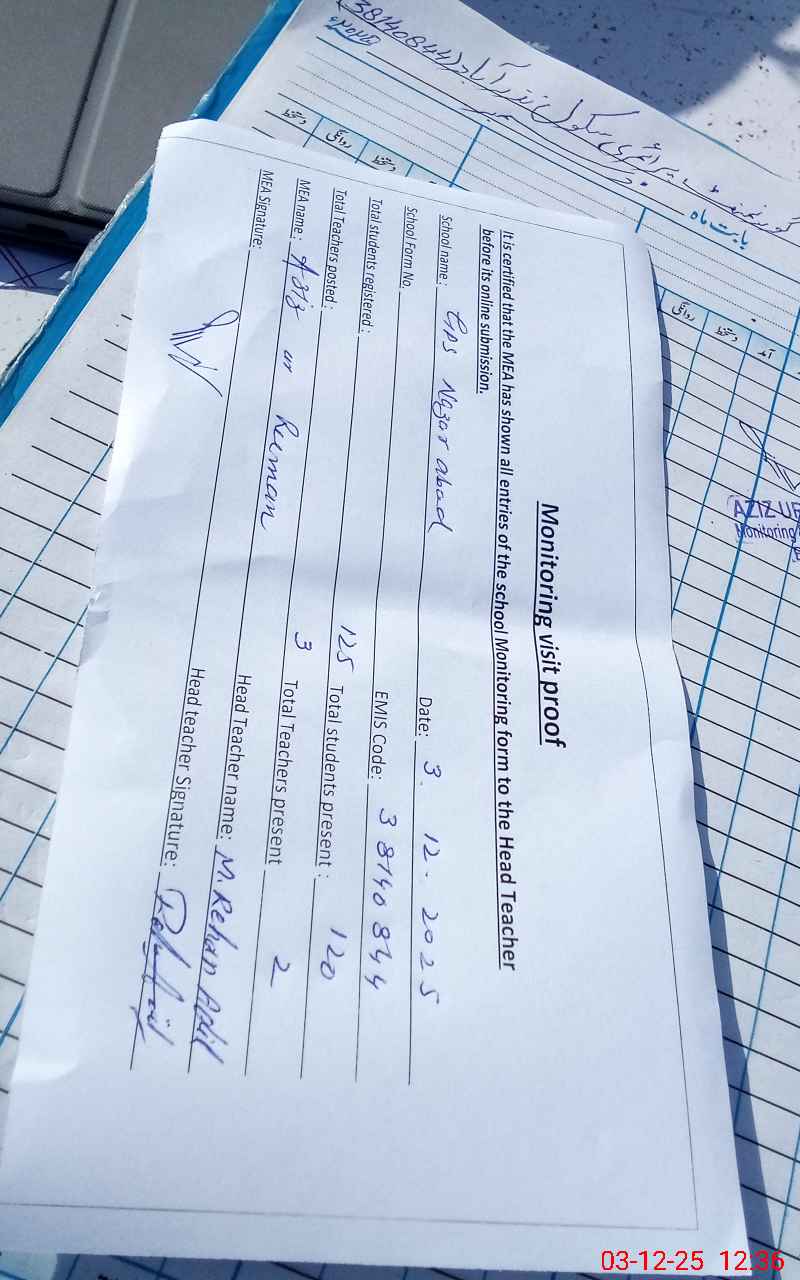 Monitoring visit proof
It is certified that the MEA has shown all entries of the school Monitoring form to the Head Teacher
before its online submission.
School name: GPS Nazar abad Date: 3. 12. 2025
School Form No. EMIS Code: 38140844
Total students registered: 125 Total students present: 120
Total Teachers posted: 3 Total Teachers present 2
MEA name: Aziz ur Reman Head Teacher name: M. Rehan Adil
MEA Signature: Head teacher Signature:
گورنمنٹ پرائمری سکول نذر آباد (38140844)
بابت ماہ
آمد دستخط روانگی
دستخط روانگی دستخط
AZIZ-UR
Monitoring
03-12-25 12:36